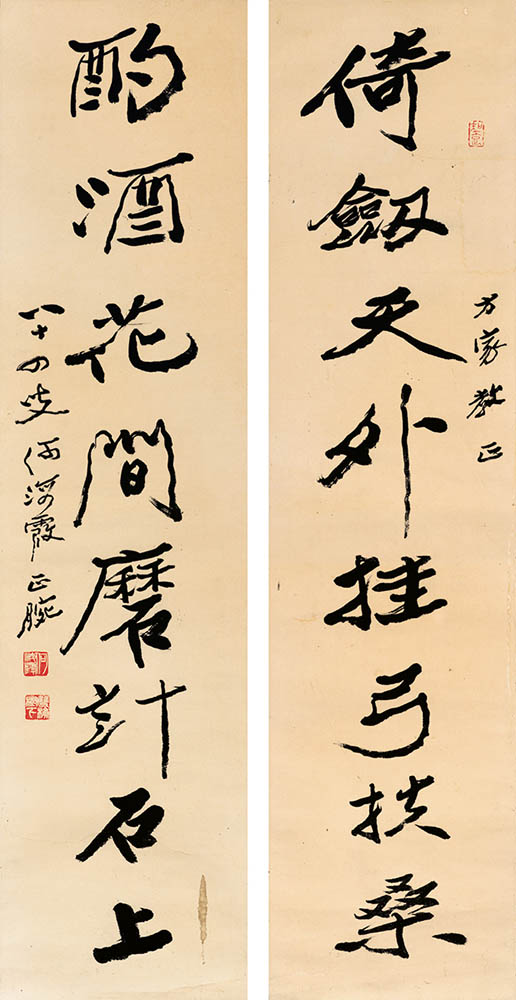 方家教正
倚劔天外挂弓扶桑
酌酒花間磨計石上
八十四叟何海霞正腕